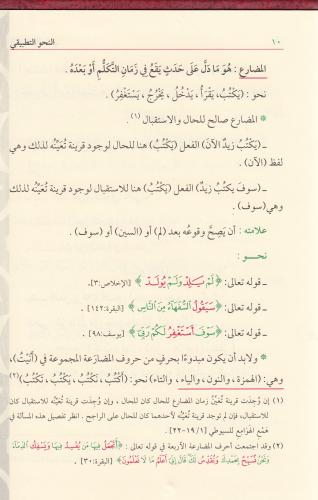 ١٠ النحو التطبيقي
المضارع : هُوَ مَا دَلَّ عَلَى حَدَثٍ يَقَعُ فِي زَمَانِ التَّكَلُّمِ أَوْ بَعْدَهُ .
نحو : (يَكْتُبُ، يَقْرَأُ ، يَدْخُلُ ، يَخْرُجُ ، يَسْتَغْفِرُ) .
* المضارع صالح للحال والاستقبال (١) .
ـ (يَكْتُبُ زيدٌ الآنَ) الفعل (يَكْتُبُ) هنا للحال لوجود قرينة تُعَيِّنُه لذلك وهي
لفظ (الآن) .
ـ (سوفَ يكتُبُ زيدٌ) الفعل (يَكْتُبُ) هنا للاستقبال لوجود قرينة تُعَيِّنُه لذلك
وهي(سوف) .
علامته : أن يَصِحَّ وقوعُه بعد (لم) أو (السين) أو (سوف) .
نحـــو :
ـ قوله تعالى: ﴿لَمْ يَكِلِدْ وَلَمْ يُولَدْ﴾ [الإخلاص:٣].
ـ قوله تعالى: ﴿سَيَقُولُ السُّفَهَاءُ مِنَ النَّاسِ﴾ [البقرة:١٤٢] .
ـ قوله تعالى: ﴿سَوْفَ أَسْتَغْفِرُ لَكُمْ رَبِّيَ﴾ [يوسف:٩٨] .
* ولابد أن يكون مبدوءًا بحرفٍ من حروف المضارَعة المجموعة في (أَنَيْتُ)،
وهي: (الهمزة، والنون، والياء ، والتاء) نحو: (أَكْتُبُ، نَكْتُبُ، يَكْتُبُ، تَكْتُبُ)(٢)
(١) إن وُجدَت قرينة تُعَيِّنُ زمان المضارع للحال كان للحال ، وإن وُجدَت قرينة تُعَيِّنُه للاستقبال كان
للاستقبال، فإن لم توجد قرينة تُعَيِّنُه لأحدهما كان للحال على الراجح . انظر تفصيل هذه المسألة في
هَمْع الهوامع للسيوطي [١/ ١٩-٢٢] .
(٢) وقد اجتمعت أحرف المضارعة الأربعة في قوله تعالى : ﴿أَتَجْعَلُ فِيهَا مَن يُفْسِدُ فِيهَا وَيَسْفِكُ الدِّمَاءَ
وَنَحْنُ نُسَبِّحُ بِحَمْدِكَ وَنُقَدِّسُ لَكَ قَالَ إِنِّي أَعْلَمُ مَا لَا تَعْلَمُونَ﴾ [البقرة: ٣٠] .